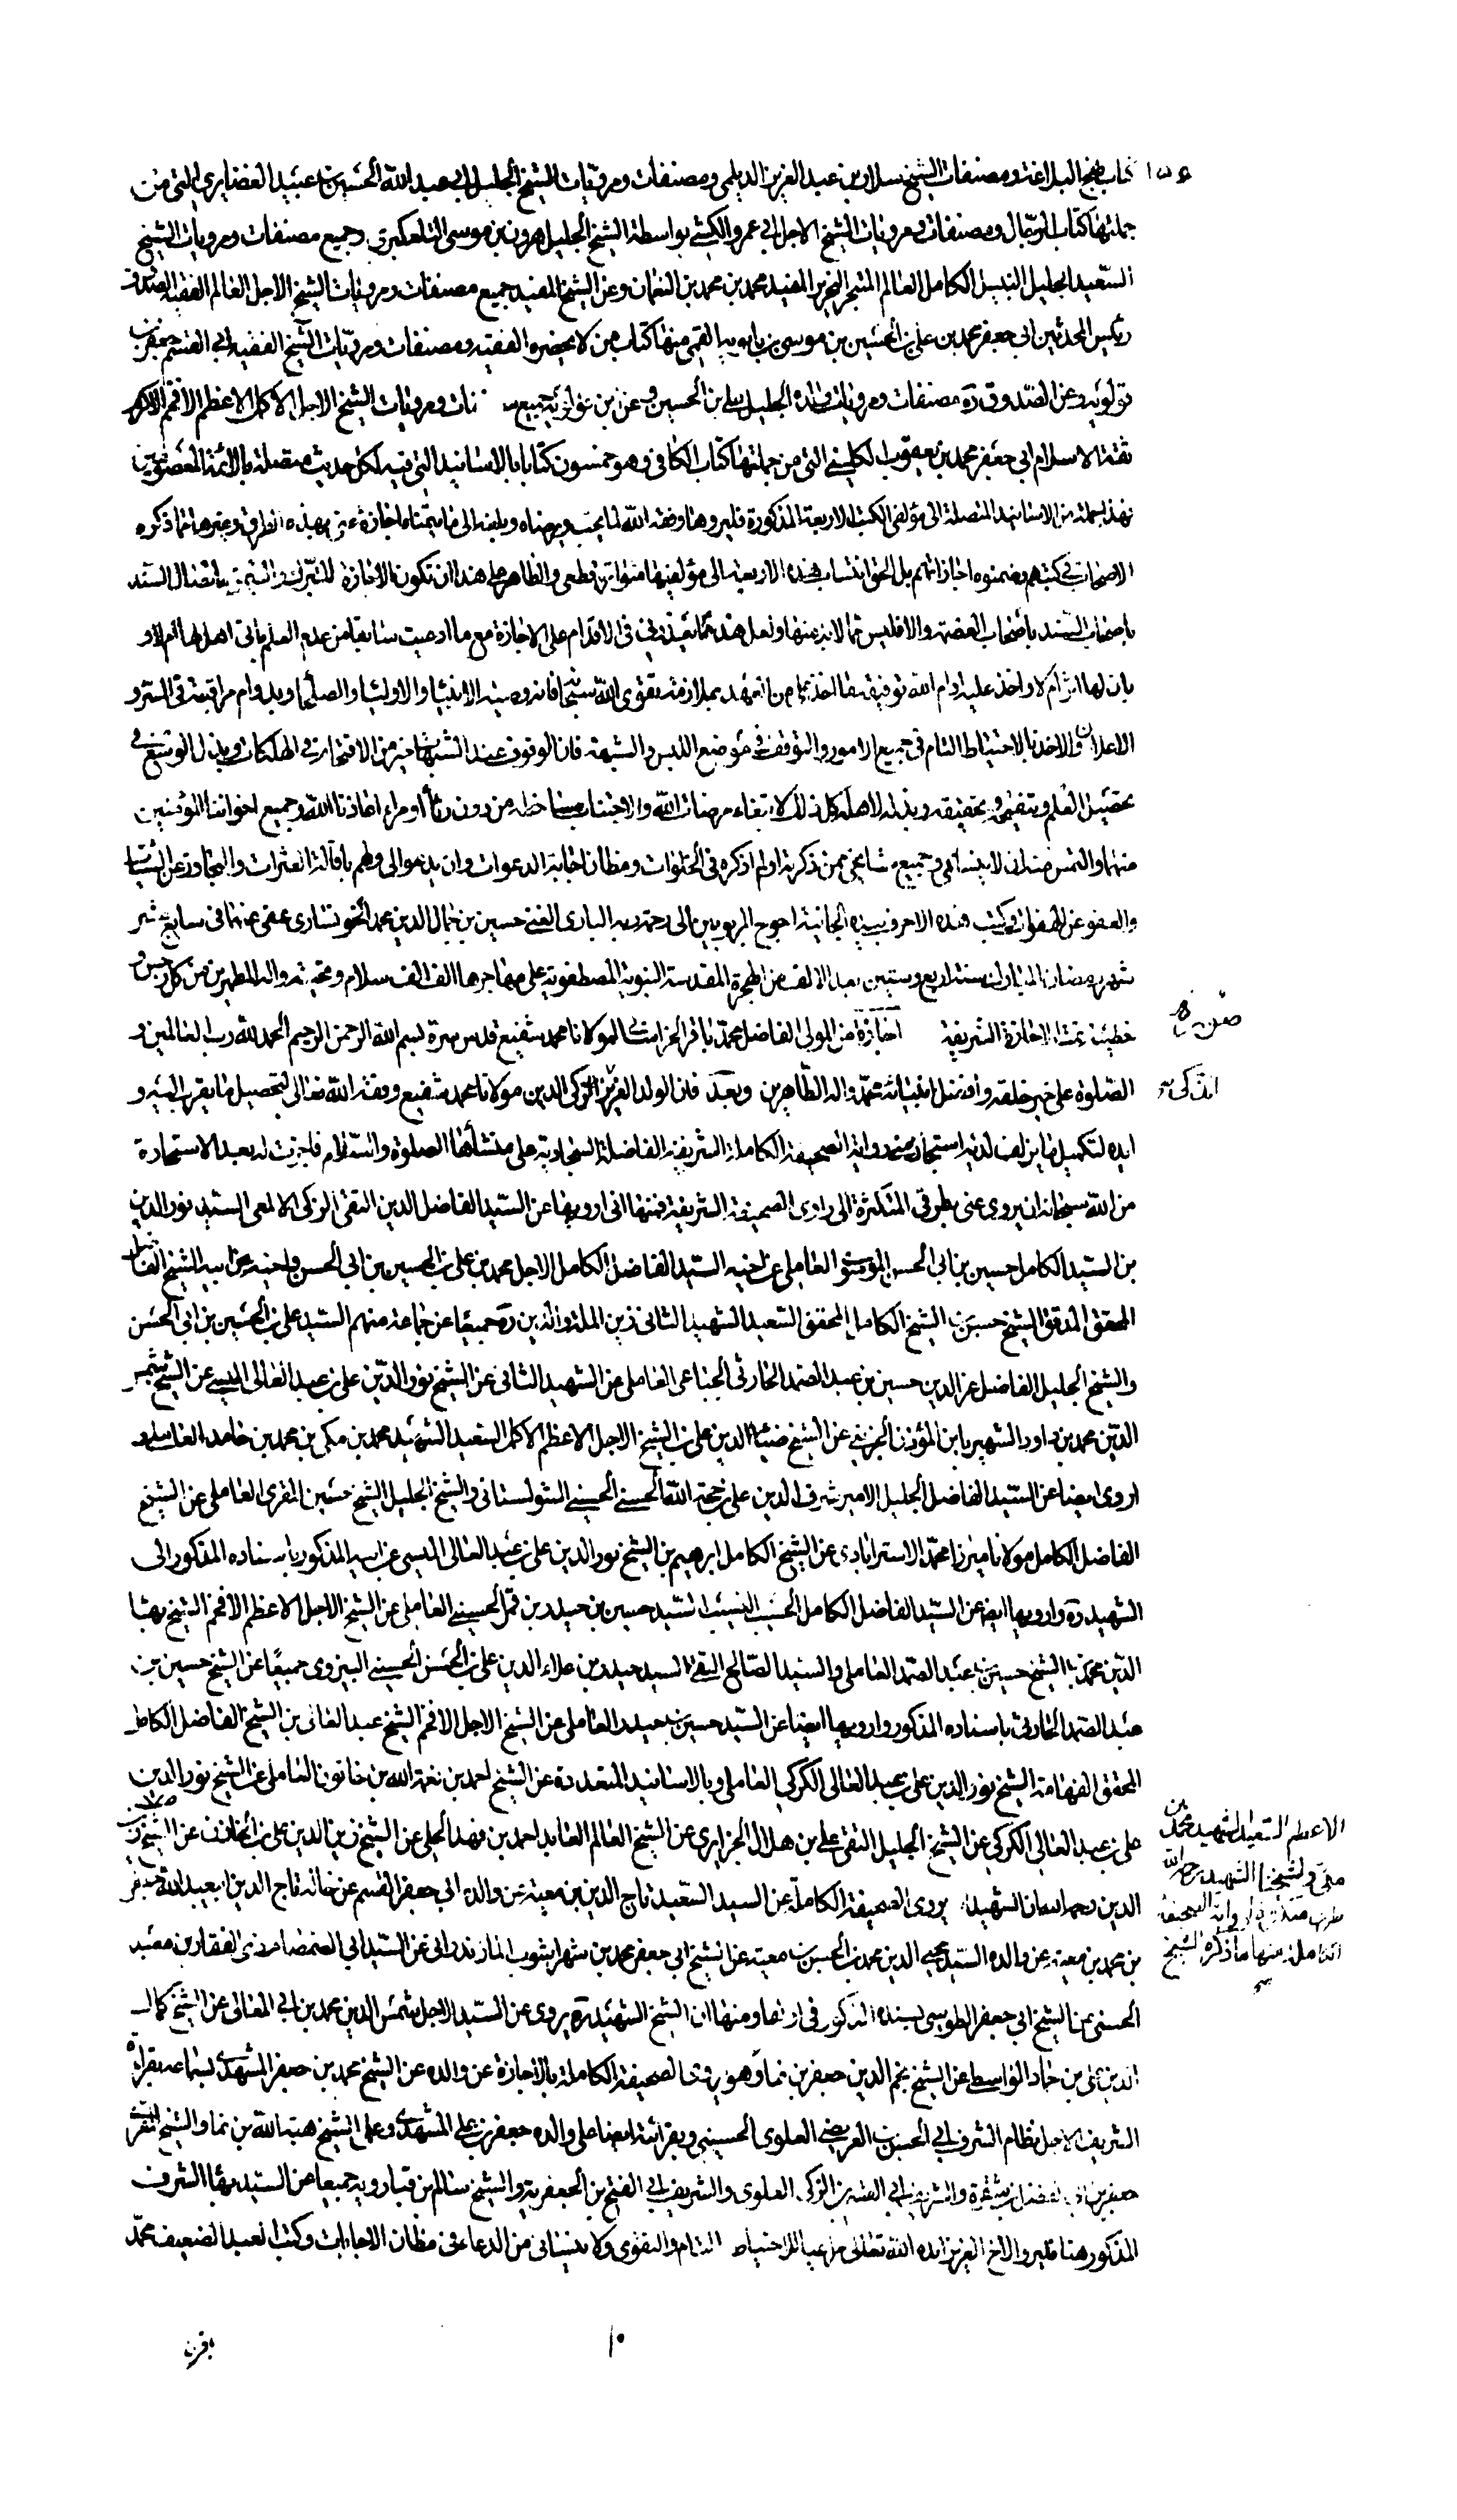 كتاب نهج البلاغة ومصنفات الشيخ سلار بن عبد العزيز الديلمي ومصنفات ومرويّات الشيخ الجليل ابي عبد الله الحسين بن عبيد الله الغضايري التي من
جملتها كتاب الرجال ومصنفات ومرويات الشيخ الاجل ابي عمرو الكشي بواسطة الشيخ الجليل هرون بن موسى التلعكبري وجميع مصنفات ومرويات الشيخ
السّعيد الجليل النبيل الكامل العالم المتبحر النحرير المفيد محمد بن محمد بن النعمان وعن الشيخ المفيد جميع مصنفات ومرويات الشيخ الاجل العالم الفقيه الصدوق
رئيس المحدثين ابي جعفر محمد بن علي بن الحسين بن موسى بن بابويه القمي منها كتاب من لا يحضره الفقيه ومصنفات ومرويّات الشيخ الفقيه ابي القسم جعفر بن
قولويه وعن الصّدوق ره مصنفات ومرويات والده الجليل علي بن الحسين وعن ابن قولويه جميع ومرويات الشيخ الاجل الاكمل الاعظم الافخم الاكرم
ثقة الاسلام ابي جعفر محمد بن يعقوب الكليني التي من جملتها كتاب الكافي وهو خمسون كتابا بالاسانيد التي فيه لكل حديث متصلة بالائمة المعصومين
فهذا جملة من الاسانيد المتصلة الى مؤلفي الكتب الاربعة المذكورة فليروها وفقه الله لما يحب ويرضاه ويلغه الى ما يتمناه بهذه الطرق وغيرها مما ذكره
الاصحاب في كتبهم وضمنوه اجازاتهم بل الحق انتساب هذه الاربعة الى مؤلفيها متواتر قطعي والظاهر على هذا ان تكون الاجازة للتبرك والتيمن باتصال السند
باصحاب السند باصحاب العصمة والا فليس مما لابد منها ولعل هذا مما في الاقدام على الاجازة مع ما ادعيت سابقا من عدم
بملازمة تقوى الله سبحانه فانه وصية الانبياء والاولياء والصلحاء وبدوام مراقبته في السر و
الاعلان والاخذ بالاحتياط التام في جميع الامور والتوقف في موضع اللبس والشبهة فان الوقوف عند الشبهات خير من الاقتحام في الهلكات وبذل الوسع في
تحصيل العلم وتحقيقه وبذله لاهله كل ذلك لابتغاء مرضات الله والاجتناب من دون رياء او مراء اعاذنا الله وجميع اخواننا المؤمنين
منهما والتمس منه ان لا ينساني وجميع مشايخي ممن ذكرته او لم اذكره في الخلوات ومظان اجابة الدعوات وان يدعو لي ولهم باقالة العثرات والتجاوز عن السيئات
والعفو عن الهفوات وكتب هذه الاحرف بيده الجانية احوج المربوبين الى رحمة ربه الباري الغني حسين بن جمال الدين محمد الخونساري عفي عنهما في سابع عشر
شهر رمضان المبارك سنة اربع وستين بعد الالف من الهجرة المقدسة النبوية المصطفوية على مهاجرها الف الف سلام وتحية واله المطهرين من كل رجس و
خطيئة تمت الاجازة الشريفة اجازة من المولى الفاضل محمد باقر الخراساني لمولانا محمد شفيع قدس سره بسم الله الرحمن الرحيم الحمد لله رب العالمين و
الصّلوة على خير خلقه وافضل انبيائه محمّد واله الطّاهرين وبعد فان الولد العزيز الزكي الدين مولانا محمد شفيع وفقه الله تعالى لتحصيل ما يقرب اليه و
ايده لتكميل ما يزلف لديه استجاز مني رواية الصحيفة الكاملة الشريفة الفاضلة السّجادية على منشأها الصلوة والسّلام فاجزت له بعد الاستخارة
من الله سبحانه ان يروي عني بطرقي المتكثرة الى راوي الصحيفة الشريفة فمنها اني ارويها عن السيّد الفاضل الدين التقي الزكي الالمعي السيد نور الدين
بن السيد الكامل حسين بن ابي الحسن الموسوي العاملي عن اخيه السيّد الفاضل الكامل الاجل محمد بن علي بن الحسين بن ابي الحسن واخيه عن ابيه الشيخ الفاضل
المحقق المدقق الشيخ حسن بن الشيخ الكامل المحقق السّعيد الشهيد الثاني زين الملة والدين ره جميعا عن جماعة منهم السيّد علي بن الحسين بن ابي الحسن
والشيخ الجليل الفاضل عز الدين حسين بن عبد الصمد الحارثي الجباعي العاملي عن الشهيد الثاني عن الشيخ نور الدّين علي بن عبد العالي الميسي عن الشيخ شمس
الدّين محمد بن داود الشهير بابن المؤذن الجزيني عن الشيخ ضياء الدين علي بن الشيخ الاجل الاعظم الاكمل السعيد الشهيد محمد بن مكي بن محمد بن حامد العاملي و
اروي ايضا عن السيّد الفاضل الجليل الامير شرف الدين علي بن حجة الله الحسني الحسيني الشولستاني والشيخ الجليل الشيخ حسين العاملي عن الشيخ
الفاضل الكامل مولانا ميرزا محمّد الاسترابادي عن الشيخ الكامل ابرهيم بن الشيخ نور الدين علي بن عبد العالي الميسي عن ابيه المذكور باسناده المذكور الى
الشهيد ره وارويها ايضا عن السيّد الفاضل الكامل الحسيب النسيب السّيد حسين بن حيدر بن قمر الحسيني العاملي عن الشيخ الاجل الاعظم الافخم الشيخ بهاء
الدّين محمّد بن الشيخ حسين بن عبد الصّمد العاملي والسيّد الصّالح التقي السيد حيدر بن علاء الدين علي بن الحسن الحسيني البيزوي جميعا عن الشيخ حسين بن
عبد الصّمد الحارثي باسناده المذكور وارويها ايضا عن السيّد حسين بن حيدر العاملي عن الشيخ الاجل الافخم الشيخ عبد العالي بن الشيخ الفاضل الكامل
المحقق الفهامة الشيخ نور الدين علي بن عبد العالي الكركي العاملي وبالاسانيد المتعددة عن الشيخ احمد بن نعمة الله بن خاتون العاملي عن الشيخ نور الدين
علي بن عبد العالي الكركي عن الشيخ الجليل التقي علي بن هلال الجزايري عن الشيخ العالم العابد احمد بن فهد الحلي عن الشيخ زين الدين علي بن الخازن عن الشيخ زين
الدين رحمه الله الشهيد يروي الصحيفة الكاملة عن السيد السّعيد تاج الدين بن معية عن والده ابي جعفر القسم عن خاله تاج الدين ابي عبد الله جعفر
بن محمد بن معية عن والده السيّد مجيي الدين محمد بن الحسين بن معية عن الشيخ ابي جعفر محمد بن شهراشوب المازندراني عن السيّد ابي الصمصام ذي الفقار بن معبد
الحسني عن الشيخ ابي جعفر الطوسي بسنده المذكور في ومنها ان الشيخ الشهيد ره يروي عن السيّد الاجل شمس الدين محمد بن ابي المعالي عن الشيخ كمال
الدين علي بن حماد الواسطي عن الشيخ نجم الدين جعفر بن نما وهو يروي الصحيفة الكاملة بالاجازة عن والده عن الشيخ محمد بن جعفر المشهدي بسماعه بقراءة
الشريف الاجل نظام الشرف ابي الحسن بن العريضي العلوي الحسيني وبقرائته ايضا على والده جعفر بن علي المشهدي وعلى الشيخ هبة الله بن نما والشيخ المقري
جعفر بن ابي الفضل بن شعرة والشريف ابي القسم بن الزكي العلوي والشريف ابي الفتح بن الجعفرية والشيخ سالم بن قبارويه جميعا عن السيد بهاء الشرف
المذكور هنا فليرو الاخ العزيز ايده الله تعالى مراعيا للاحتياط التام والتقوى ولا ينساني من الدعاء في مظان الاجابات وكتب العبد الضعيف محمّد
الاعظم السّعيد الشهيد محمد بن
مكّي ولشيخنا الشهيد رحمه الله
طرق متعددة في رواية الصحيفة
الكاملة منها ما ذكره الشيخ
باقر بن
١٠